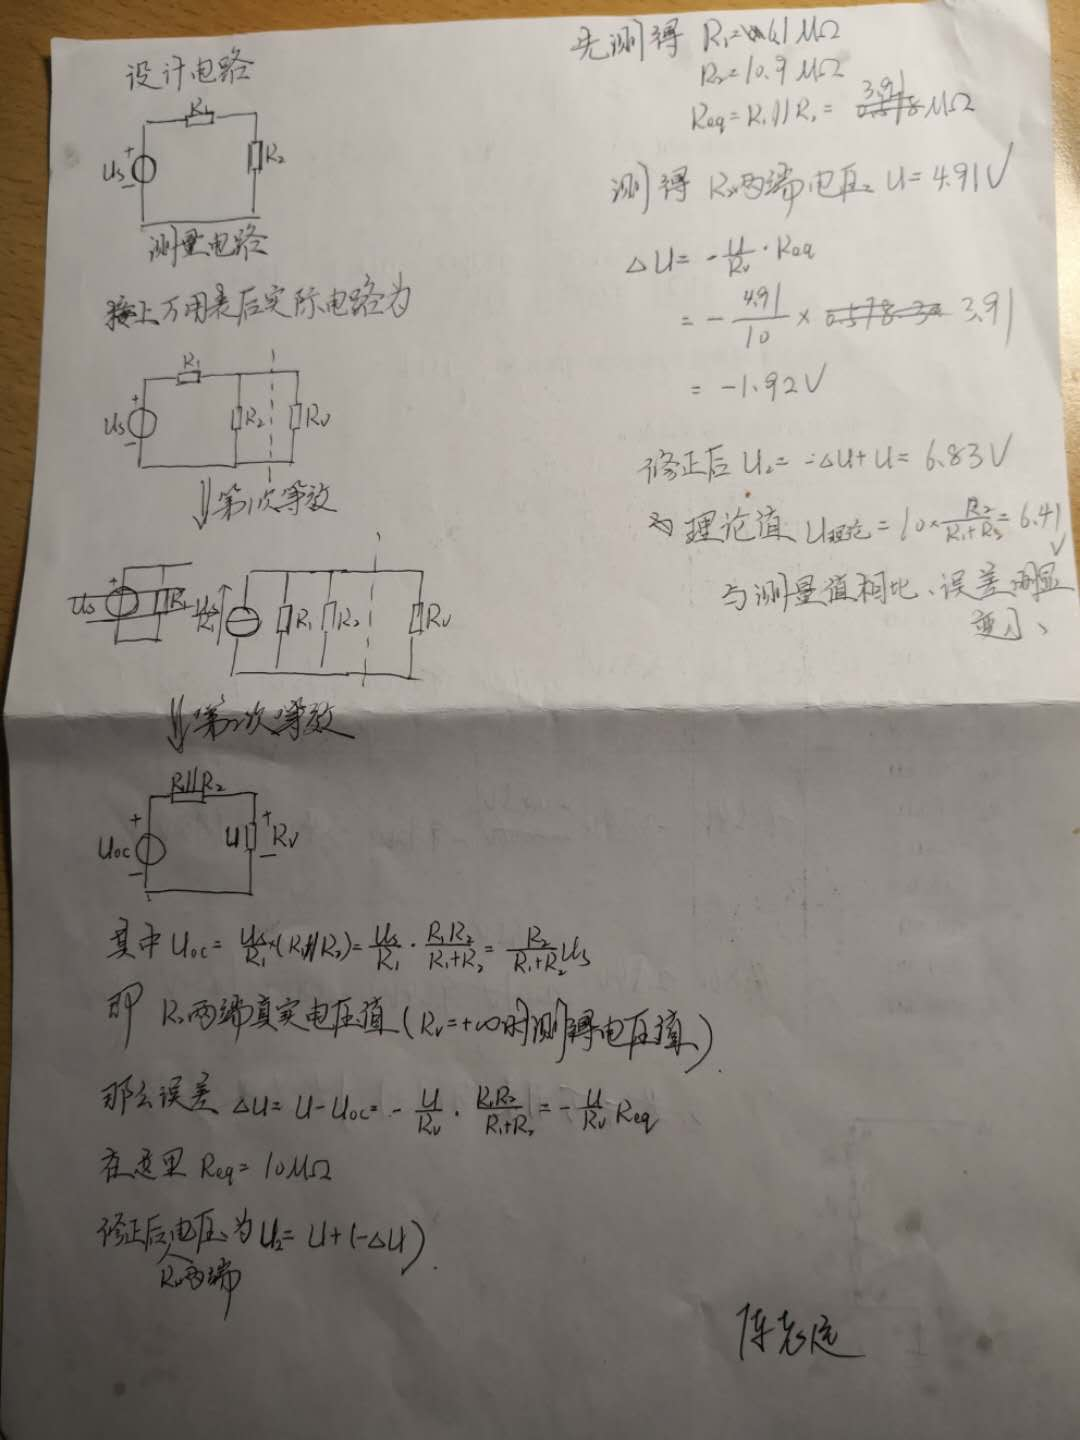 设计电路
R₁
Us
+
-
R₂
测量电路
接上万用表后实际电路为
R₁
Us
+
-
R₂
Rv
第1次等效
Us
R₁
Us/R₁
R₁
R₂
Rv
第2次等效
R₁//R₂
Uoc
+
-
U
+
-
Rv
其中 Uoc = Us/R₁ ×(R₁//R₂) = Us/R₁ · R₁R₂/(R₁+R₂) = R₂/(R₁+R₂) Us
即 R₂两端真实电压值 (Rv=+∞时测得电压值)
那么误差 ΔU = U-Uoc = - U/Rv · R₁R₂/(R₁+R₂) = - U/Rv Req
在这里 Req = 10MΩ
修正后电压为 U₂ = U+(-ΔU)
R₂两端
先测得 R₁= 6.1 MΩ
R₂=10.9 MΩ
Req = R₁//R₂ = 3.91 MΩ
测得 R₂两端电压 U = 4.91V
ΔU = - U/Rv · Req
= - 4.91/10 × 3.91
= -1.92V
修正后 U₂ = -ΔU+U = 6.83V
与理论值 U理论 = 10× R₂/(R₁+R₂) = 6.41V
与测量值相比、误差明显
变小、